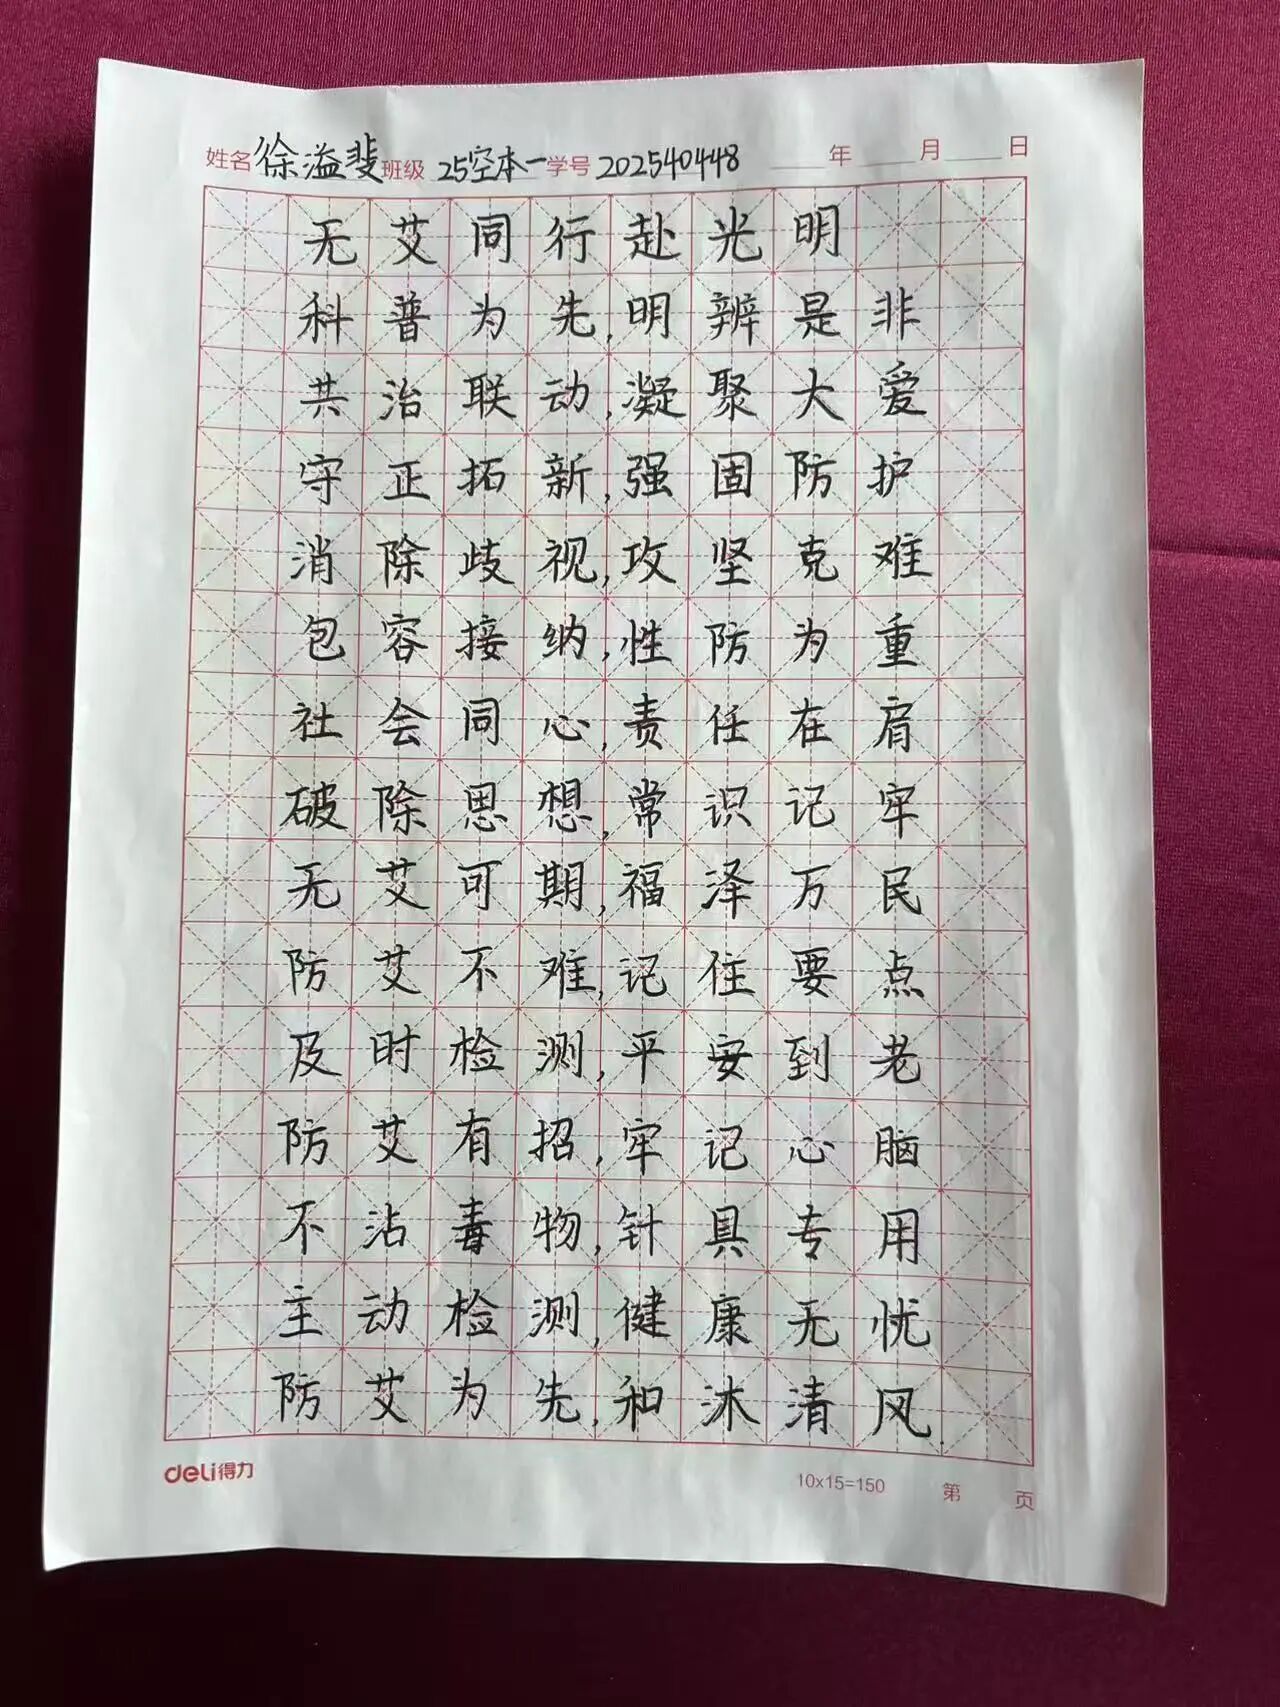 姓名 徐溢斐 班级 25空本一 学号 202540448 年 月 日
无艾同行赴光明
科普为先,明辨是非
共治联动,凝聚大爱
守正拓新,强固防护
消除歧视,攻坚克难
包容接纳,性防为重
社会同心,责任在肩
破除思想,常识记牢
无艾可期,福泽万民
防艾不难,记住要点
及时检测,平安到老
防艾有招,牢记心脑
不沾毒物,针具专用
主动检测,健康无忧
防艾为先,和沐清风.
deli得力 10x15=150 第 页